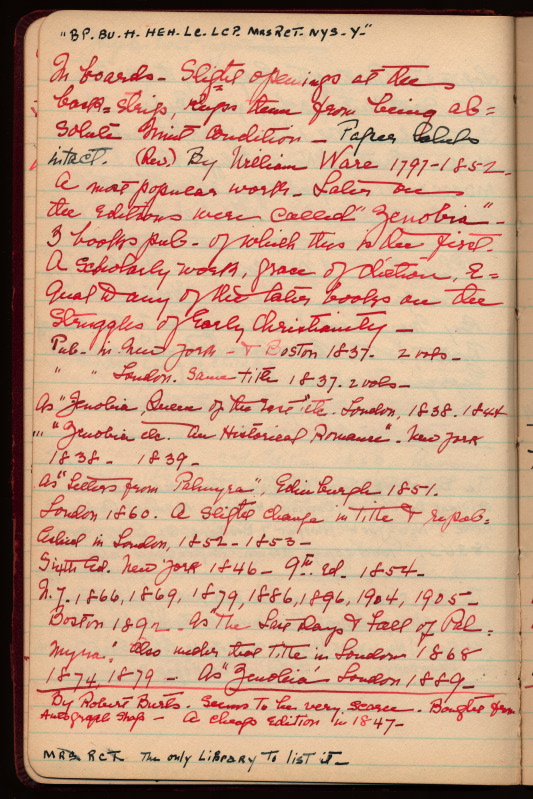 "BP. BU. H. HEH. LC. LCP. MRS RCT. NYS. Y."
In boards - Slight openings at the
back-strip, keeps them from being ab=
solute Mint Condition - Paper labels
intact. (Rev.) By William Ware 1797-1852.
A most popular work - Later on
the editions were called "Zenobia" -
3 books pub - of which this is the first.
A Scholarly work, grace of diction, E=
qual to any of his later books on the
struggles of Early Christianity -
Pub - in New York - & Boston 1837. 2 vols -
" " London. Same title 1837. 2 vols -
As "Zenobia, Queen of the East" etc. London, 1838. 1844
" "Zenobia etc. An Historical Romance". New York
1838 - 1839 -
As "Letters from Palmyra", Edinburgh 1851.
London 1860. A slight change in title & repub=
lished in London, 1852 - 1853 -
Sixth Ed. New York 1846 - 9th. Ed. 1854 -
N.Y. 1866, 1869, 1879, 1886, 1896, 1904, 1905 -
Boston 1892 - As "The Last Days & Fall of Pal=
myra". Also under that title in London 1868
1874, 1879 - As "Zenobia" London 1889 -
By Robert Burts. Seems to be very scarce. Bought from
Autograph Shop - A cheap edition in 1847 -
MRS RCT. The only Library to list it -